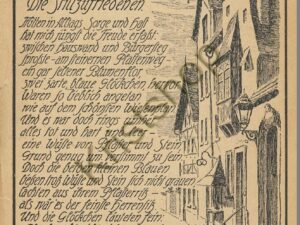 Die Stillzufriedenen.
Mitten in Alltags Sorge und Hast
hat mich jüngst die Freude erfaßt:
zwischen Hauswand und Bürgersteig
sproßte am steinernen
ein gar seltener Blumenflor
zwei zarte, blaue Glöckchen hervor
Waren so lieblich angetan
wie auf dem schönsten
Und es war doch rings umher
alles tot und hart und leer
eine Wüste von Pflaster und Stein
Grund genug um verstimmt zu sein
Doch die beiden kleinen Blauen
ließen trotz Wüste und Stein sich nicht grauen
lachten aus ihrem Pflasterritz
als wär es der feinste Herrensitz
Und die Glöckchen läuteten fein: